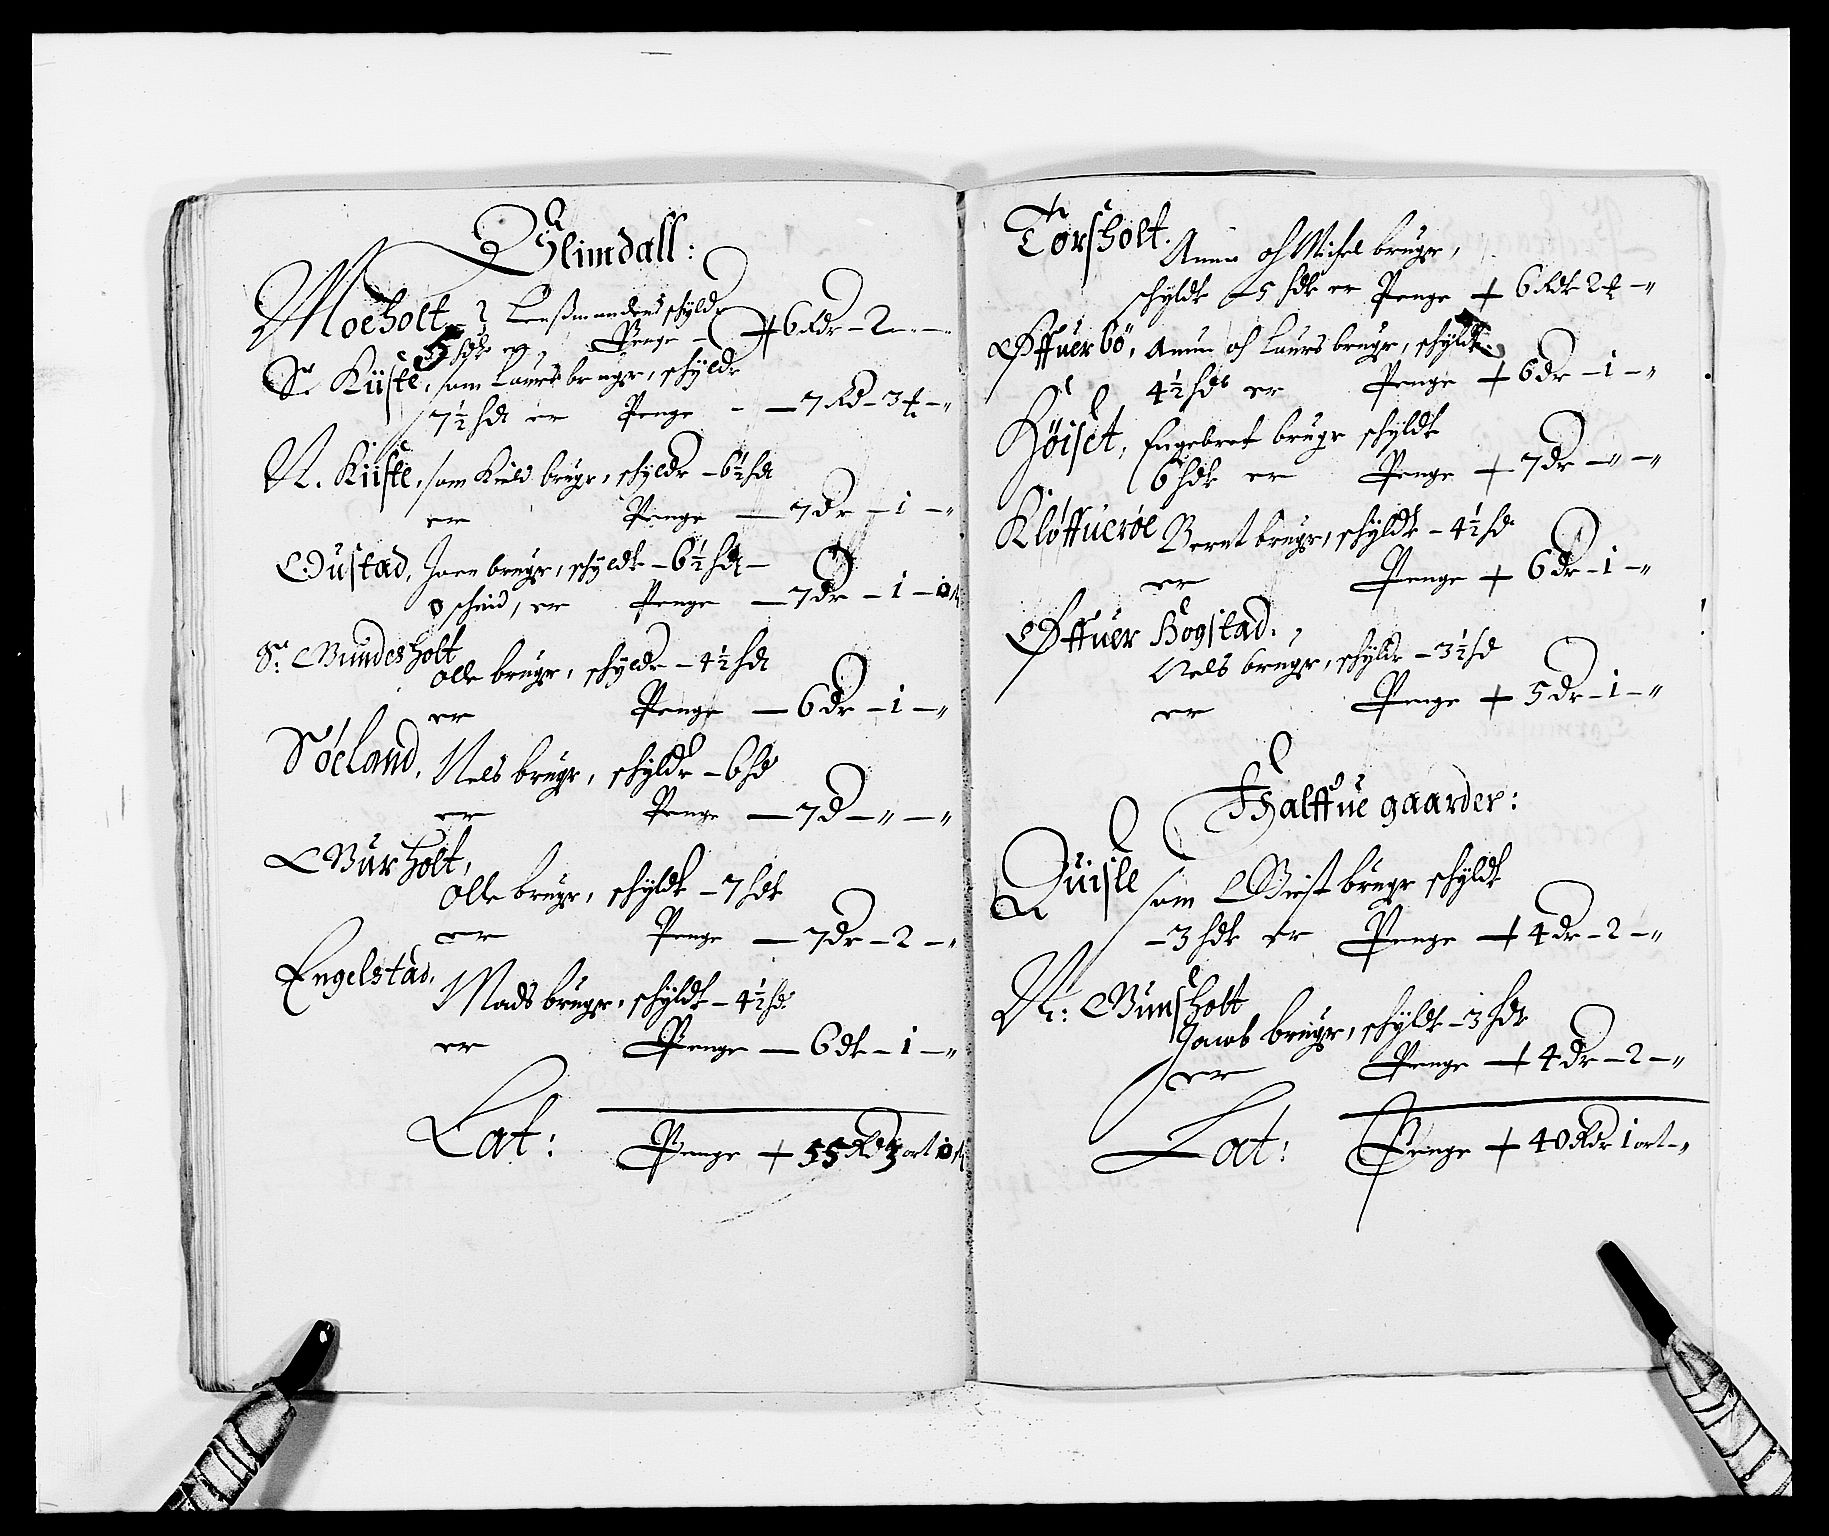 Slimdall:
Moeholt Lensmandens schylder
5 hdr er, Penge - 6 Rdr - 2 - -
Sr. Kiiste, som Laurs bruger, schylder
7½ hdr er Penge - - 7 Rd - 3 ½ - "
N. Kiiste, som Kield bruger, schylder - 6½ hd
er Penge - 7 dr - 1 - "
Joen bruger, schylder - 6½ hdr -
er Penge - 7 dr - 1 -
Sr: Bundesholt
Olle bruger, schylder - 4½ hdr
er Penge - 6 dr - 1 - "
Søeland, Nels bruger, schylder - 6 hd
er Penge - 7 d - " - "
Burholt,
Olle bruger, schylder - 7 hdr
er Penge - 7 dr - 2 - "
Engelstad,
Mads bruger, schylder - 4½ hd
er Penge - 6 dr - 1 - "
Lat: Penge + 55 Rdr 3 ort
Torsholt.
Anun og Michel bruger,
schylder - 5 hdr er Penge + 6 Rdr 2 ½ - "
Øffuerbø, Anun og Laurs bruger, schylder
4½ hdr er Penge + 6 dr - 1 - "
Høiset, Engebret bruger schylder
6 hdr er Penge + 7 dr - " - "
Kløffuerøe Bernt bruger, schylder - 4½ hd
er Penge + 6 dr - 1 - "
Øffuer Bogstad.,
Nels bruger, schylder - 3½ hd
er Penge + 5 dr - 1 - "
Halffue gaarder:
Quisle som bruger schylder
- 3 hdr er Penge + 4 dr - 2 - "
N: Bunsholt
Jacob bruger, schylder - 3 hdr
er Penge + 4 dr - 2 - "
Lat: Penge + 40 Rdr 1 ort - "